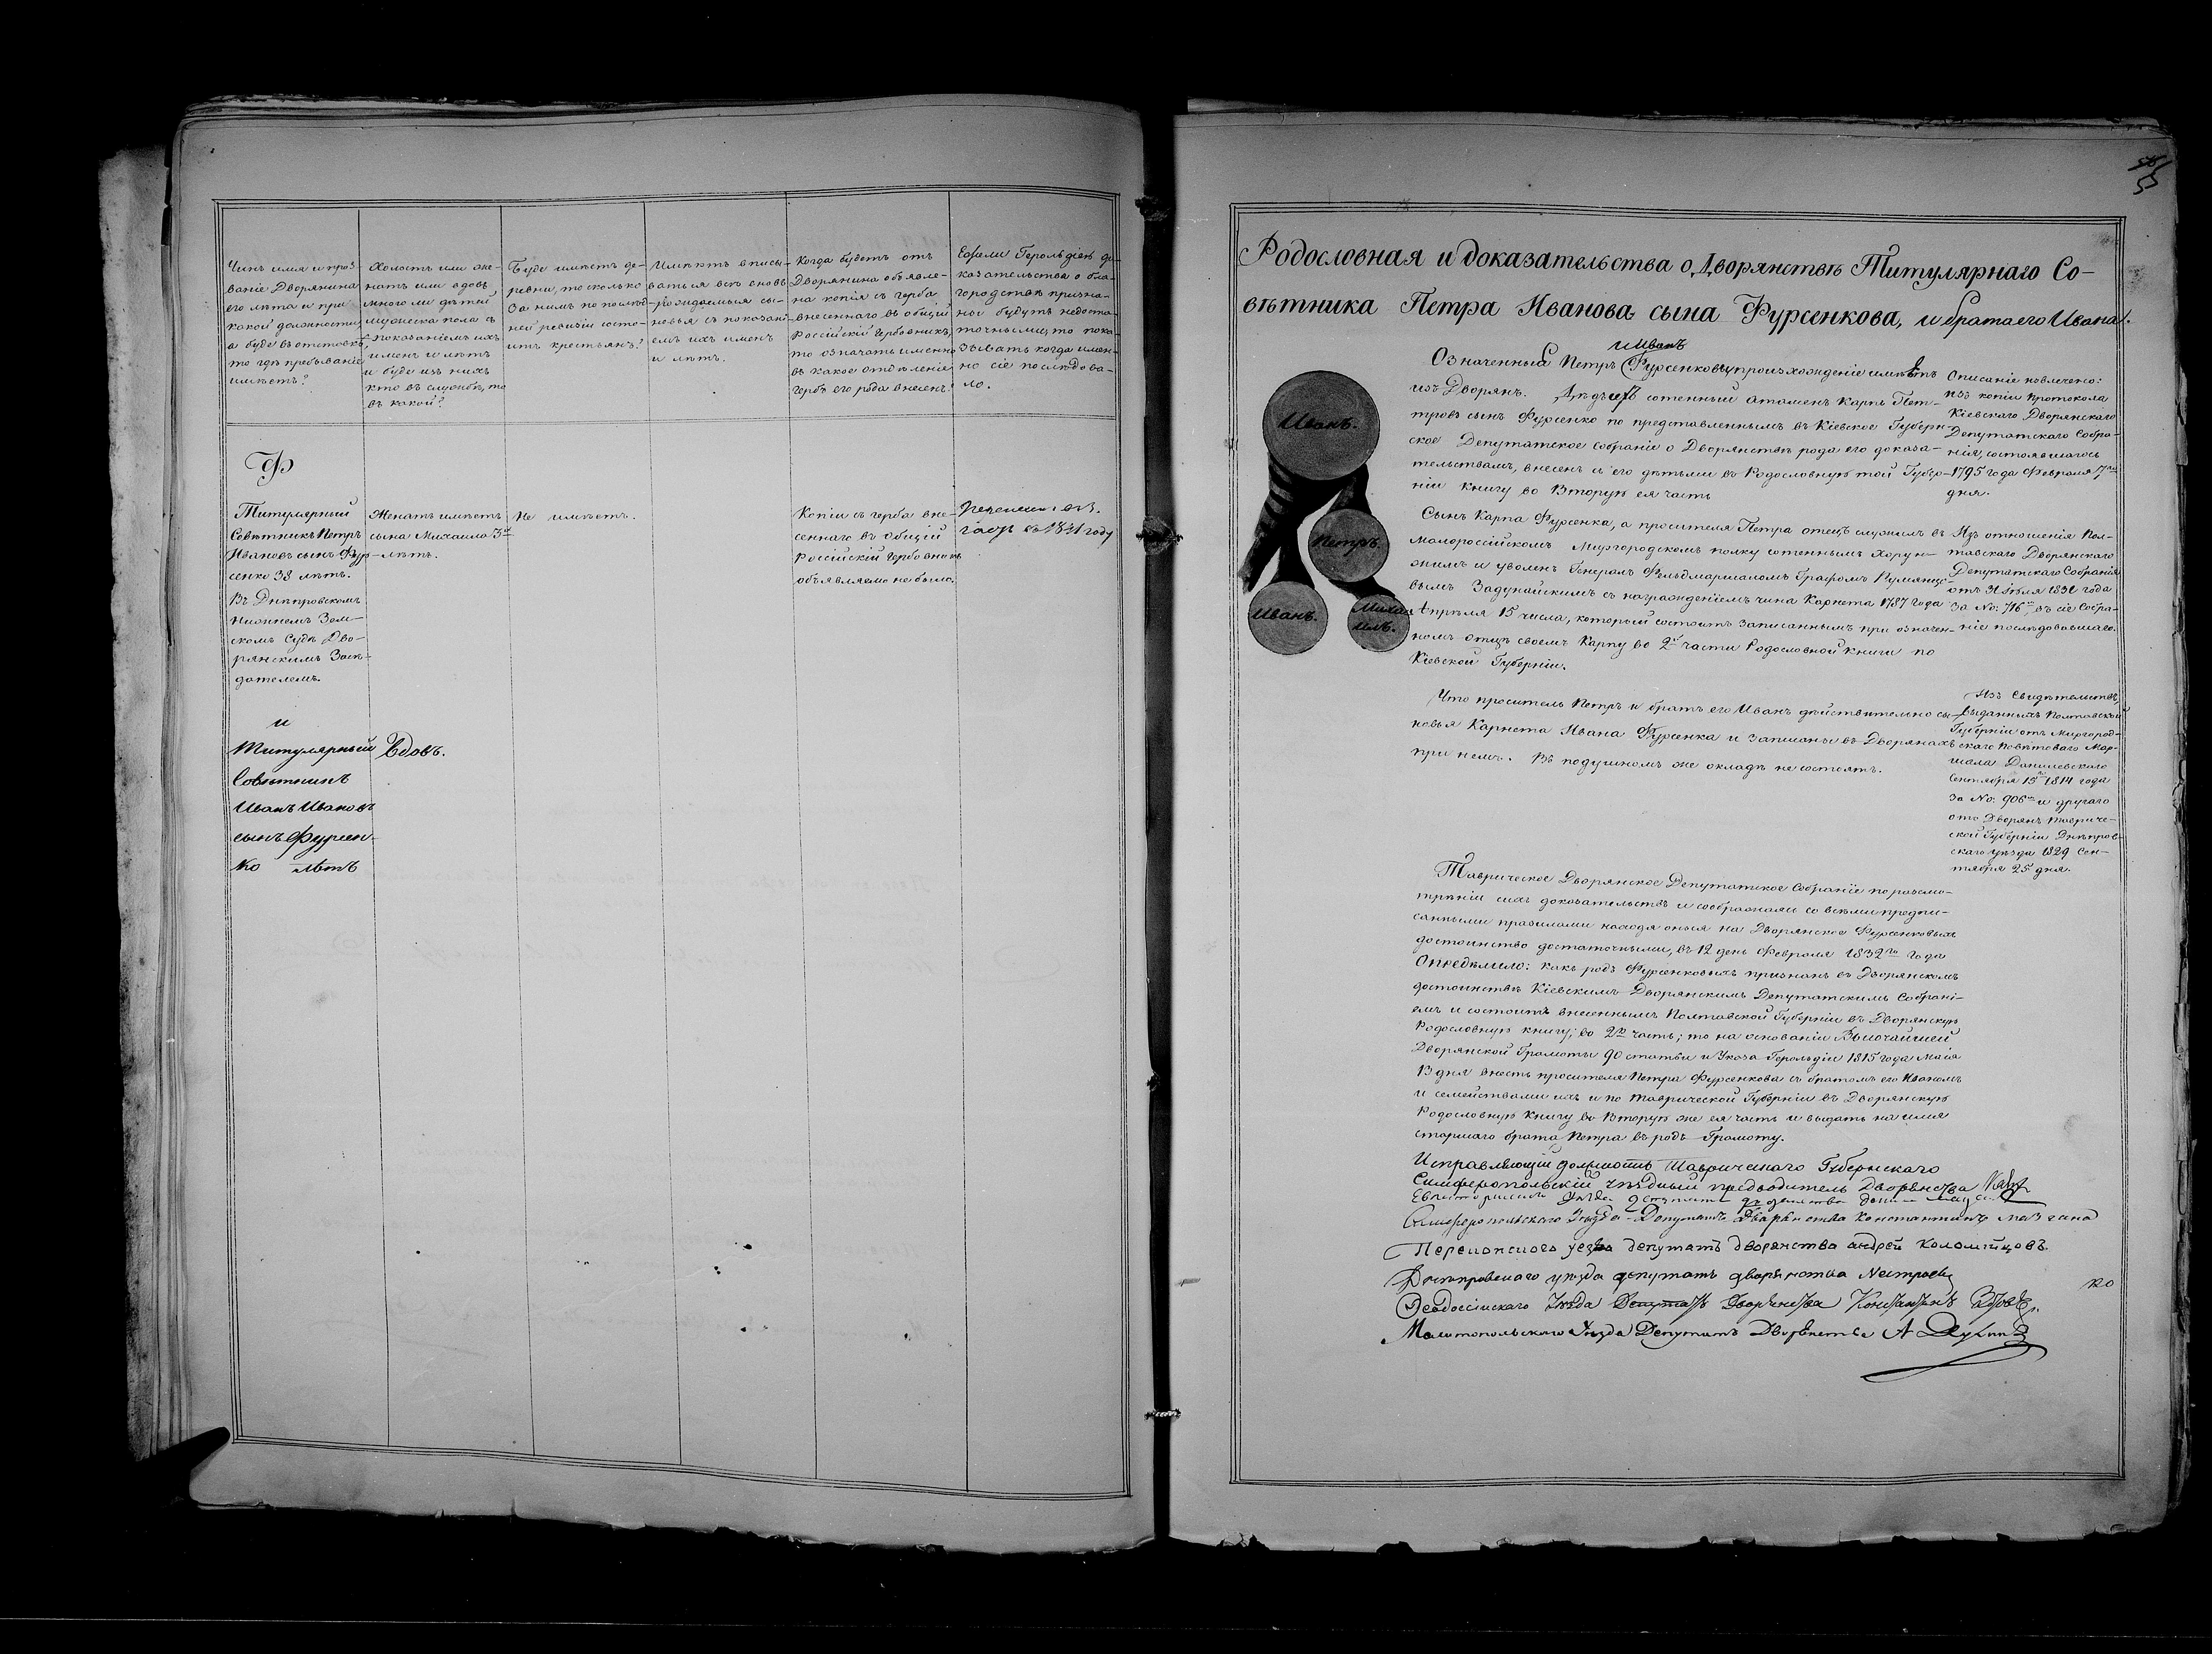 Чинъ имя и проз-
ваніе Дворянина
его лѣта и при
какой должности,
а буде въ отставкѣ,
то гдѣ пребываніе
имѣетъ?
Холостъ или же-
натъ или вдовъ
много ли дѣтей
мужеска пола съ
показаніемъ ихъ
именъ и лѣтъ
и буде изъ нихъ
кто въ службѣ, то
въ какой?
Буде имѣетъ де-
ревни, то сколько
за нимъ по послѣд-
ней ревизіи состо-
итъ крестьянъ?
Имѣютъ вписы-
ваться всѣ вновь
рождаемыя сы-
новья съ показані-
емъ ихъ именъ
и лѣтъ.
Когда будетъ отъ
Дворянина объявле-
на копія съ герба
внесеннаго въ общій
Россійскій Гербовникъ,
то означать именно
въ какое отдѣленіе
гербъ его рода внесенъ?
Ежели Герольдіею до-
казательства о бла-
городствѣ призна-
ны будутъ недоста-
точными, то пока-
зывать когда имен-
но сіе послѣдова-
ло.
Ф
Титулярный
Совѣтникъ Петръ
Ивановъ сынъ Фур-
сенко 38 лѣтъ.
Въ Днѣпровскомъ
Нижнемъ Зем-
скомъ Судѣ Дво-
рянскимъ Засѣ-
дателемъ.
Женатъ имѣетъ
сына Михаила 3х
лѣтъ.
Не имѣетъ.
Копіи съ герба вне-
сеннаго въ общій
Россійскій Гербовникъ
объявляемо не было.
въ 1841 году
и
Титулярный
Совѣтникъ
Иванъ Ивановъ
сынъ Фурсен-
ко лѣтъ
Вдовъ.
Родословная и доказательства о Дворянствѣ Титулярнаго Со-
вѣтника Петра Иванова сына Фурсенкова, и брата его Ивана.
и Иванъ
Означенный Петръ Фурсенковы происхожденіе имѣютъ
изъ Дворянъ. Дѣдъ ихъ сотенный Атаманъ Карпъ Пет-
тровъ сынъ Фурсенко по представленнымъ въ Кіевское Губерн-
ское Депутатское Собраніе о Дворянствѣ рода его доказа-
тельствамъ, внесенъ съ его дѣтьми въ Родословную той Губер-
ніи книгу во Вторую ея часть
Описаніе извлечено:
изъ копіи протокола
Кіевскаго Дворянскаго
Депутатскаго Собра-
нія, состоявшагося
1795 года Февраля 7го
дня.
Иванъ.
Петръ.
Иванъ.
Миха
илъ.
Сынъ Карпа Фурсенка, а просителя Петра отецъ служилъ въ
Малороссійскомъ Миргородскомъ полку сотеннымъ Хорун-
жимъ и уволенъ Генералъ Фельдмаршаломъ Графомъ Румянцо-
вымъ Задунайскимъ съ награжденіемъ чина Корнета 1787 года
Апрѣля 15 числа, который состоитъ записаннымъ при означен-
номъ отцѣ своемъ Карпу во 2й части Родословной книги по
Кіевской Губерніи.
Изъ отношенія Пол-
тавскаго Дворянскаго
Депутатскаго Собранія
отъ 31 Іюля 1831 года
за No: 716м, въ сіе Собра-
ніе послѣдовавшаго.
Что проситель Петръ и братъ его Иванъ дѣйствительно сы-
новья Карнета Ивана Фурсенка и записаны въ Дворянахъ
при немъ. Въ подушномъ же окладѣ не состоятъ.
Изъ Свидѣтельствъ,
выданныхъ Полтавской
Губерніи отъ Миргород-
скаго Повѣтоваго Мар-
шала Данилевскаго
Сентября 15го 1814 года
за No: 906м и другаго
ото Дворянъ Тавриче-
ской Губерніи Днѣпров-
скаго уѣзда 1829 Сен-
тября 25 дня.
Таврическое Дворянское Депутатское Собраніе по разсмо-
трѣніи сихъ доказательствъ и соображаяи со всѣми предпи-
санными правилами находя оныя на Дворянское Фурсенковыхъ
достоинство достаточными, въ 12 день Февраля 1832го года
Опредѣлило: какъ родъ Фурсенковыхъ признанъ въ Дворянскомъ
достоинствѣ Кіевскимъ Дворянскимъ Депутатскимъ Собрані-
емъ и состоитъ внесеннымъ Полтавской Губерніи въ Дворянскую
Родословную книгу, во 2ю часть; то на основаніи Высочайшей
Дворянской Грамоты 90 статьи и Указа Герольдіи 1815 года Маія
13 дня внесть просителя Петра Фурсенкова съ братомъ его Иваномъ
и семействами ихъ и по Таврической Губерніи въ Дворянскую
Родословную Книгу во Вторую же ея часть и выдать на имя
старшаго брата Петра въ родъ Грамоту.
Исправляющій должность Таврическаго Губернскаго
Симферопольскій уѣздный предводитель Дворянства
Симферопольскаго Уѣзда Депутатъ Дворянства Константинъ
Перекопскаго уезда депутатъ дворянства андрей Коломійцовъ.
Днѣпровскаго уѣзда депутатъ дворянства
Феодосійскаго Уѣзда Депутатъ Дворянства Константинъ
Мелитопольскаго Уѣзда Депутатъ Дворянства А